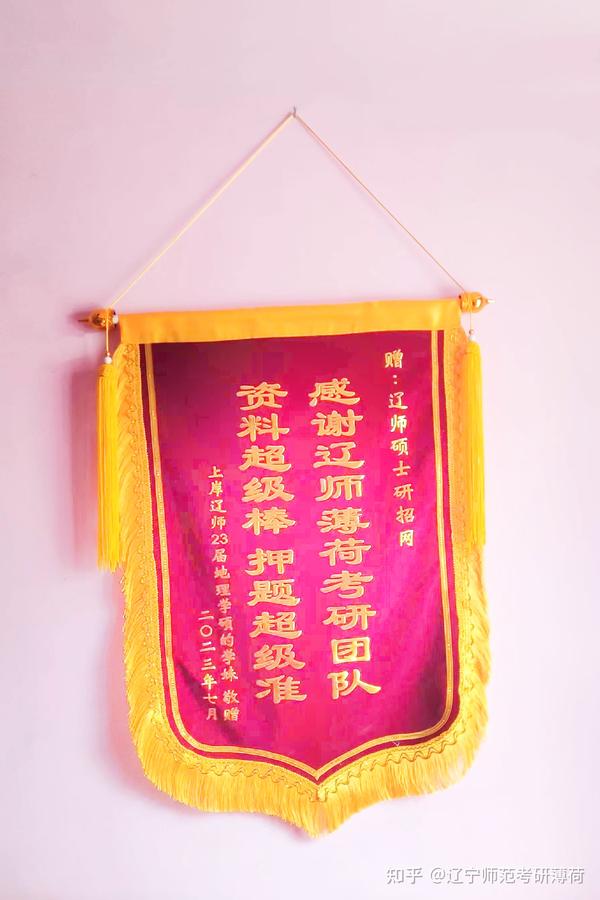 赠：辽师硕士研招网
感谢辽师薄荷考研团队
资料超级棒 押题超级准
上岸辽师23届地理学硕的学妹 敬赠
二〇二三年七月
知乎 @辽宁师范考研薄荷